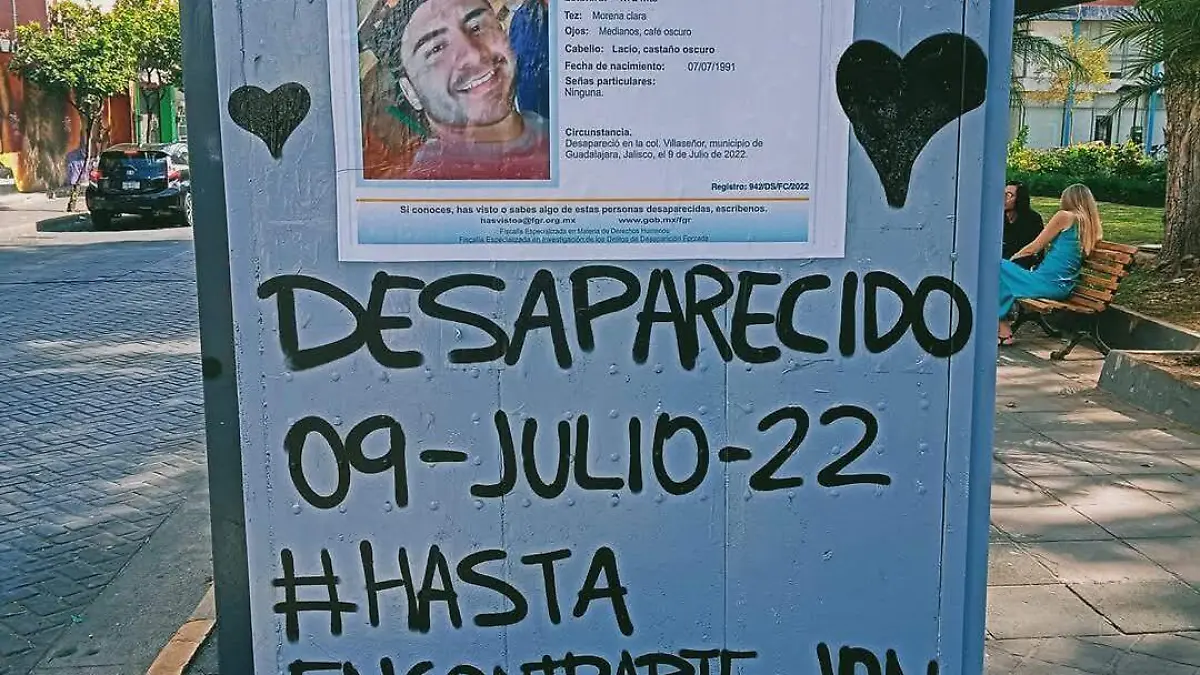 Tez: Morena clara
Ojos: Medianos, café oscuro
Cabello: Lacio, castaño oscuro
Fecha de nacimiento: 07/07/1991
Señas particulares:
Ninguna.
Circunstancia.
Desapareció en la col. Villaseñor, municipio de
Guadalajara, Jalisco, el 9 de Julio de 2022.
Registro: 942/DS/FC/2022
Si conoces, has visto o sabes algo de estas personas desaparecidas, escríbenos.
hasvistoa@fgr.org.mx www.gob.mx/fgr
Fiscalía Especializada en Materia de Derechos Humanos
Fiscalía Especializada en Investigación de los Delitos de Desaparición Forzada
DESAPARECIDO
09-JULIO-22
#HASTA
ENCONTRARTE